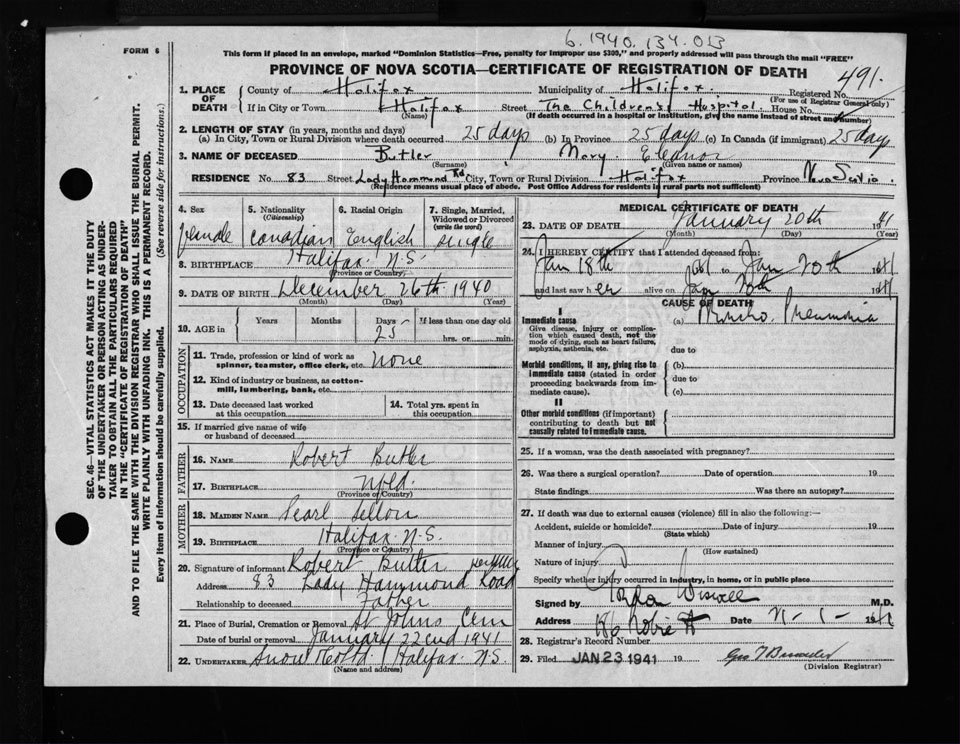 6.1940.134.013
FORM 6
This form if placed in an envelope, marked "Dominion Statistics—Free, penalty for improper use $300," and properly addressed will pass through the mail "FREE"
PROVINCE OF NOVA SCOTIA—CERTIFICATE OF REGISTRATION OF DEATH
491
1. PLACE OF DEATH
County of Halifax Municipality of Halifax Registered No.
(For use of Registrar General only)
If in City or Town Halifax Street The Children's Hospital House No.
(Name) (If death occurred in a hospital or institution, give the name instead of street and number)
2. LENGTH OF STAY (in years, months and days)
(a) In City, Town or Rural Division where death occurred 25 days (b) In Province 25 days (c) In Canada (if immigrant) 25 days
3. NAME OF DECEASED Butler Mary Eleanor
(Surname) (Given name or names)
RESIDENCE No. 83 Street Lady Hammond Rd City, Town or Rural Division Halifax Province Nova Scotia
(Residence means usual place of abode. Post Office Address for residents in rural parts not sufficient)
4. Sex female
5. Nationality (Citizenship) Canadian
6. Racial Origin English
7. Single, Married, Widowed or Divorced (write the word) single
8. BIRTHPLACE Halifax N.S.
(Province or Country)
9. DATE OF BIRTH December 26th 1940
(Month) (Day) (Year)
10. AGE in Years Months Days 25 If less than one day old hrs. or min.
OCCUPATION
11. Trade, profession or kind of work as spinner, teamster, office clerk, etc. None
12. Kind of industry or business, as cotton-mill, lumbering, bank, etc.
13. Date deceased last worked at this occupation
14. Total yrs. spent in this occupation
15. If married give name of wife or husband of deceased
FATHER
16. NAME Robert Butler
17. BIRTHPLACE Nfld.
(Province or Country)
MOTHER
18. MAIDEN NAME Pearl
19. BIRTHPLACE Halifax N.S.
(Province or Country)
20. Signature of informant Robert Butler
Address 83 Lady Hammond Road
Relationship to deceased Father
21. Place of Burial, Cremation or Removal St Johns Cem
Date of burial or removal January 22nd 1941
22. UNDERTAKER Snow & Co Ltd. Halifax N.S.
(Name and address)
MEDICAL CERTIFICATE OF DEATH
23. DATE OF DEATH January 20th 41
(Month) (Day) (Year)
24. I HEREBY CERTIFY that I attended deceased from:
Jan 18th 1941 to Jan 20th 1941
and last saw her alive on Jan 20th 1941
CAUSE OF DEATH
I
Immediate cause
Give disease, injury or complication which caused death, not the mode of dying, such as heart failure, asphyxia, asthenia, etc.
(a) Broncho. Pneumonia
due to
Morbid conditions, if any, giving rise to immediate cause (stated in order proceeding backwards from immediate cause).
(b)
due to
(c)
II
Other morbid conditions (if important) contributing to death but not causally related to immediate cause.
25. If a woman, was the death associated with pregnancy?
26. Was there a surgical operation? Date of operation 19
State findings Was there an autopsy?
27. If death was due to external causes (violence) fill in also the following:—
Accident, suicide or homicide? Date of injury 19
(State which)
Manner of injury
(How sustained)
Nature of injury
Specify whether injury occurred in industry, in home, or in public place
Signed by Wiswell M.D.
Address Robie St Date 21-1-1941
28. Registrar's Record Number
29. Filed JAN 23 1941 19
(Division Registrar)
SEC. 46—VITAL STATISTICS ACT MAKES IT THE DUTY
OF THE UNDERTAKER OR PERSON ACTING AS UNDERTAKER
TO OBTAIN ALL THE PARTICULARS REQUIRED
IN THE "CERTIFICATE OF REGISTRATION OF DEATH"
AND TO FILE THE SAME WITH THE DIVISION REGISTRAR WHO SHALL ISSUE THE BURIAL PERMIT.
WRITE PLAINLY WITH UNFADING INK. THIS IS A PERMANENT RECORD.
Every item of information should be carefully supplied. (See reverse side for instructions.)